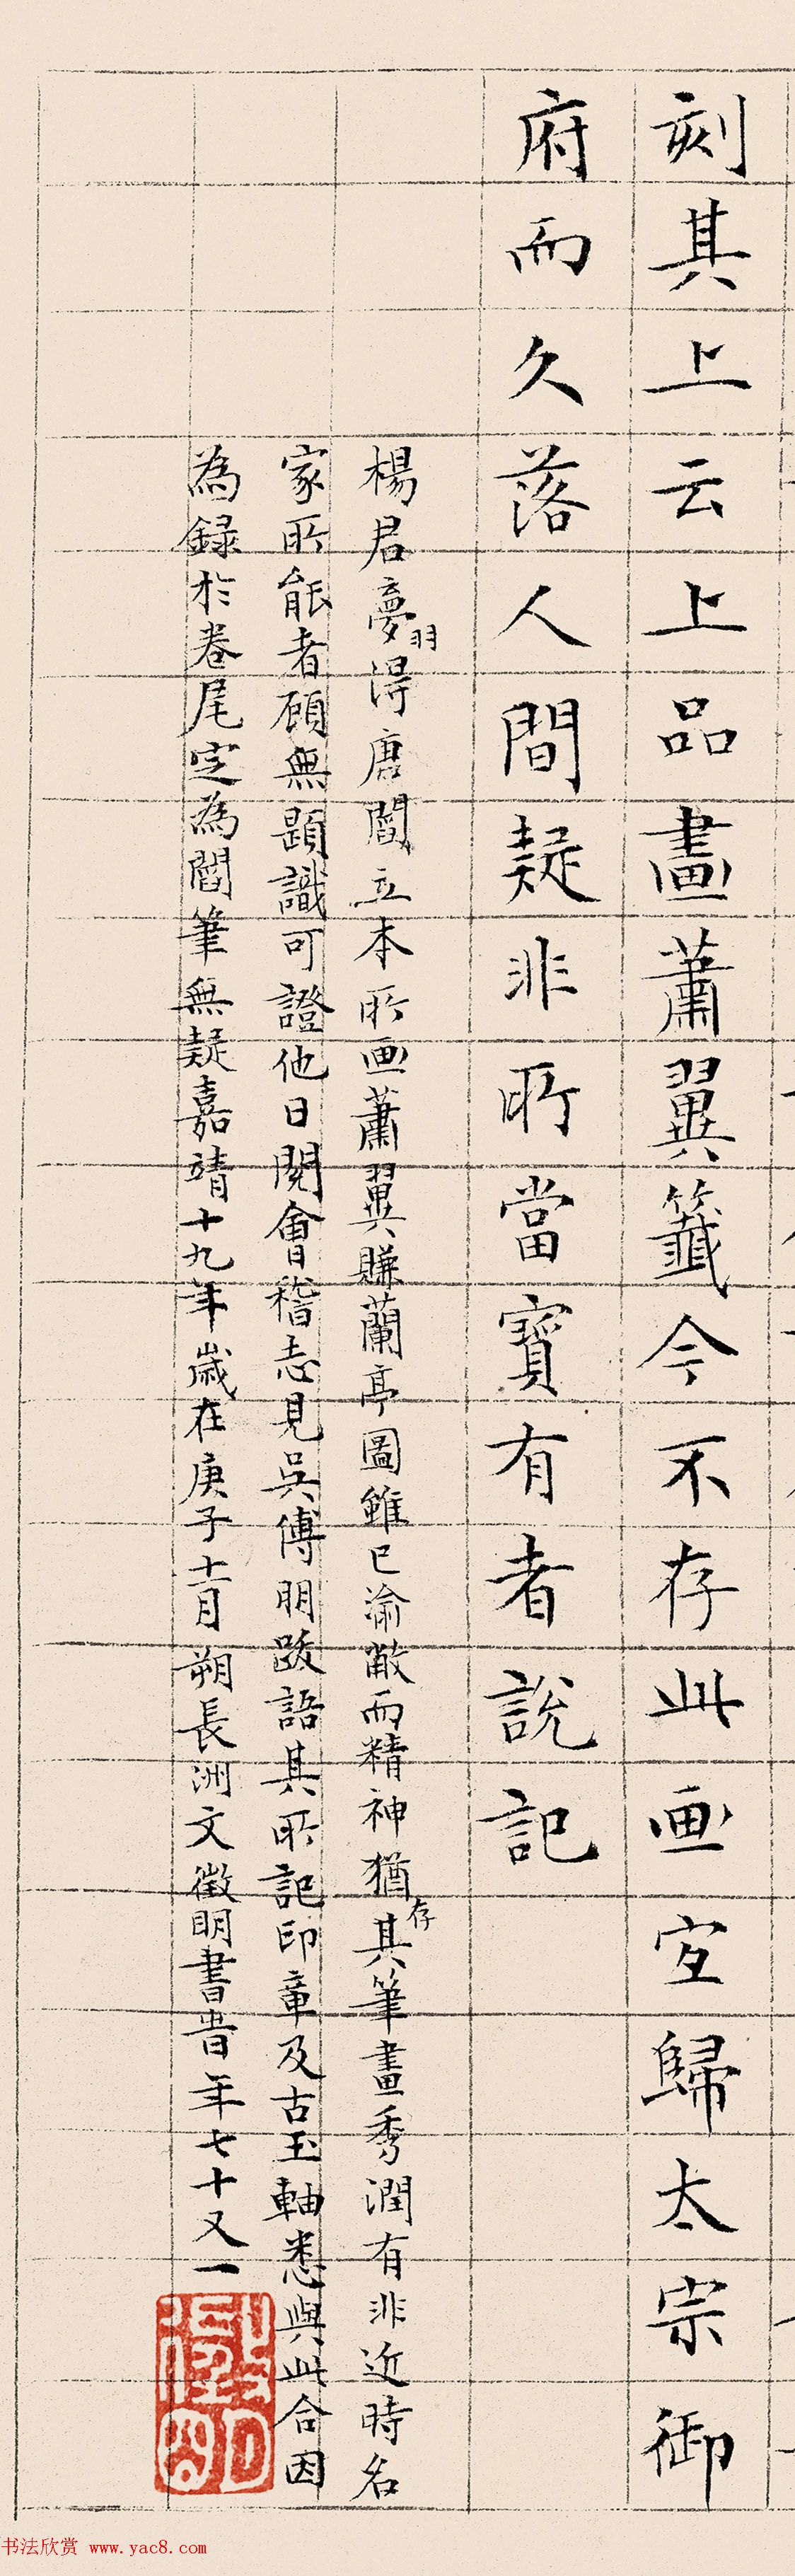 刻其上云上品畫蕭翼籖今不存此画宜歸太宗御
府而久落人間疑非所當寳有者說記
楊君夢羽得唐閻立本所画蕭翼賺蘭亭圖雖已渝敝而精神猶存其筆畫秀潤有非近時名
家所能者顧無題識可證他日閱會稽志見吳傅朋跋語其所記印章及古玉軸悉與此合因
為録於卷尾定為閻筆無疑嘉靖十九年歲在庚子十二月朔長洲文徵明書昔年七十又一
徵明
书法欣赏 www.yac8.com